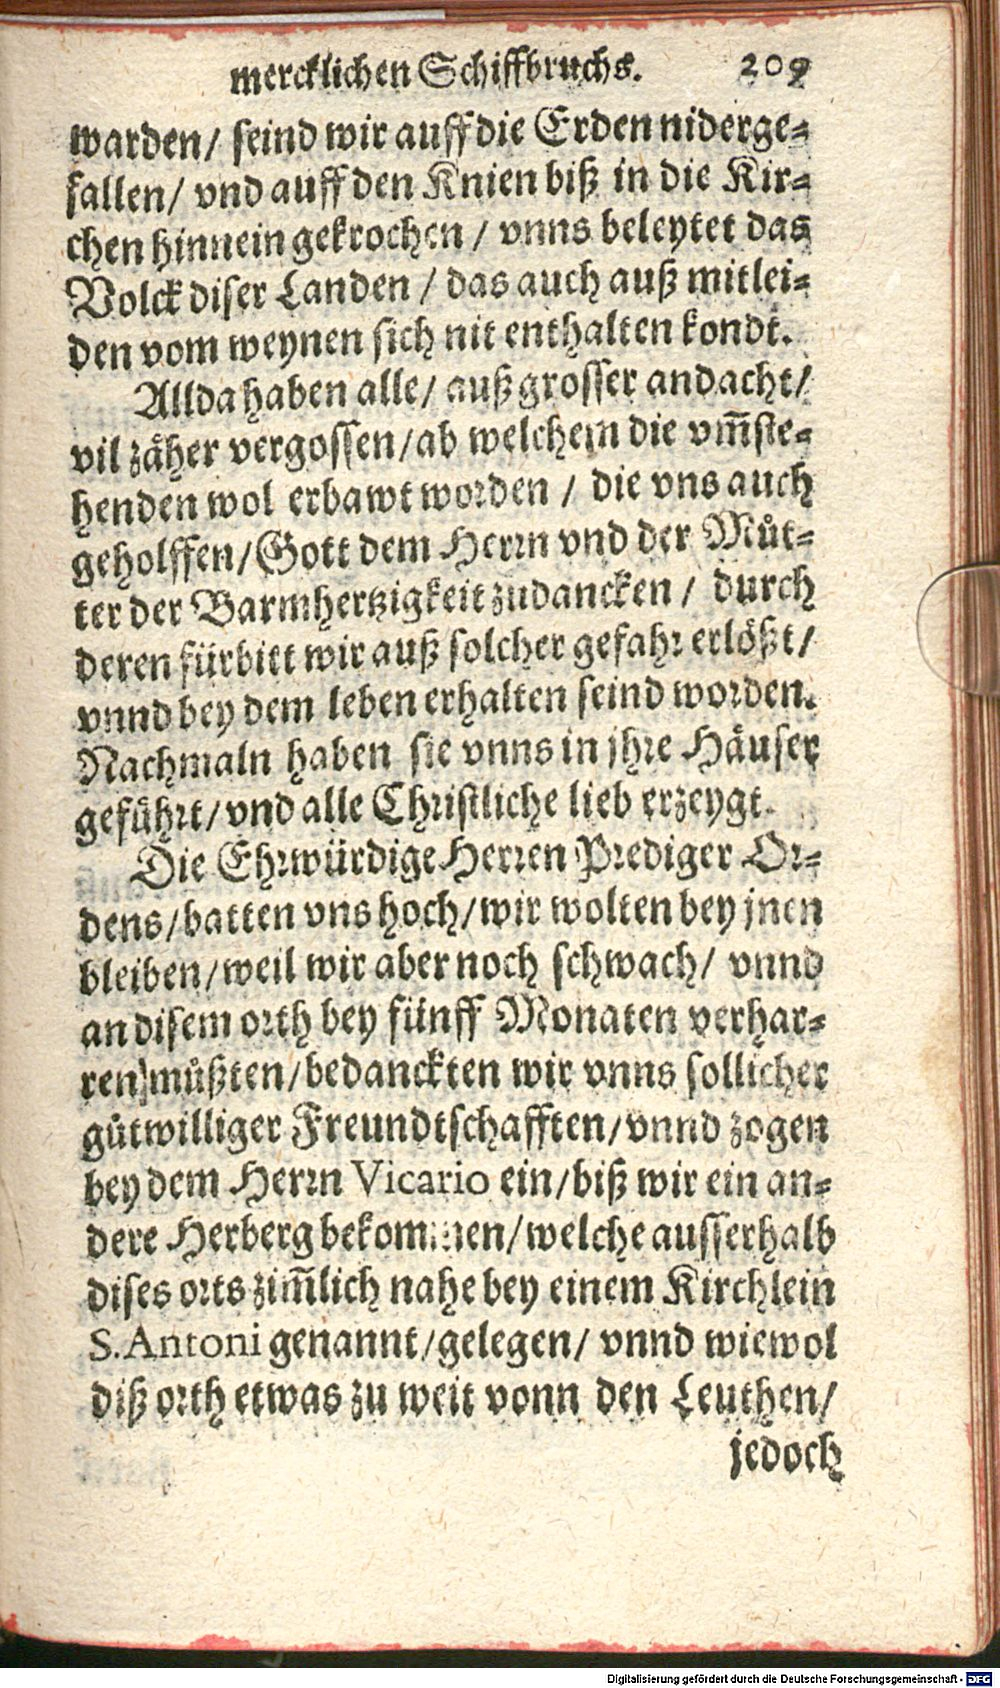 mercklichen Schiffbruchs. 209
warden/ seind wir auff die Erden niderge-
fallen/ vnd auff den Knien biß in die Kir-
chen hinnein gekrochen / vnns beleytet das
Volck diser Landen / das auch auß mitlei-
den vom weynen sich nit enthalten kondt.
Allda haben alle/ auß grosser andacht/
vil zäher vergossen/ab welchem die vm̃ste-
henden wol erbawt worden / die vns auch
geholffen/Gott dem Herrn vnd der Můt-
ter der Barmhertzigkeit zudancken / durch
deren fürbitt wir auß solcher gefahr erlößt/
vnnd bey dem leben erhalten seind worden.
Nachmaln haben sie vnns in jhre Häuser
geführt/vnd alle Christliche lieb erzeygt.
Die Ehrwürdige Herren Prediger Or-
dens/batten vns hoch/wir wolten bey jnen
bleiben/weil wir aber noch schwach/ vnnd
an disem orth bey fünff Monaten verhar-
ren müßten/bedanckten wir vnns sollicher
gütwilliger Freundtschafften/vnnd zogen
bey dem Herrn Vicario ein/biß wir ein an-
dere Herberg bekommen/welche ausserhalb
dises orts zim̃lich nahe bey einem Kirchlein
S. Antoni genannt/gelegen/ vnnd wiewol
diß orth etwas zu weit vonn den Leuthen/
jedoch
Digitalisierung gefördert durch die Deutsche Forschungsgemeinschaft - DFG